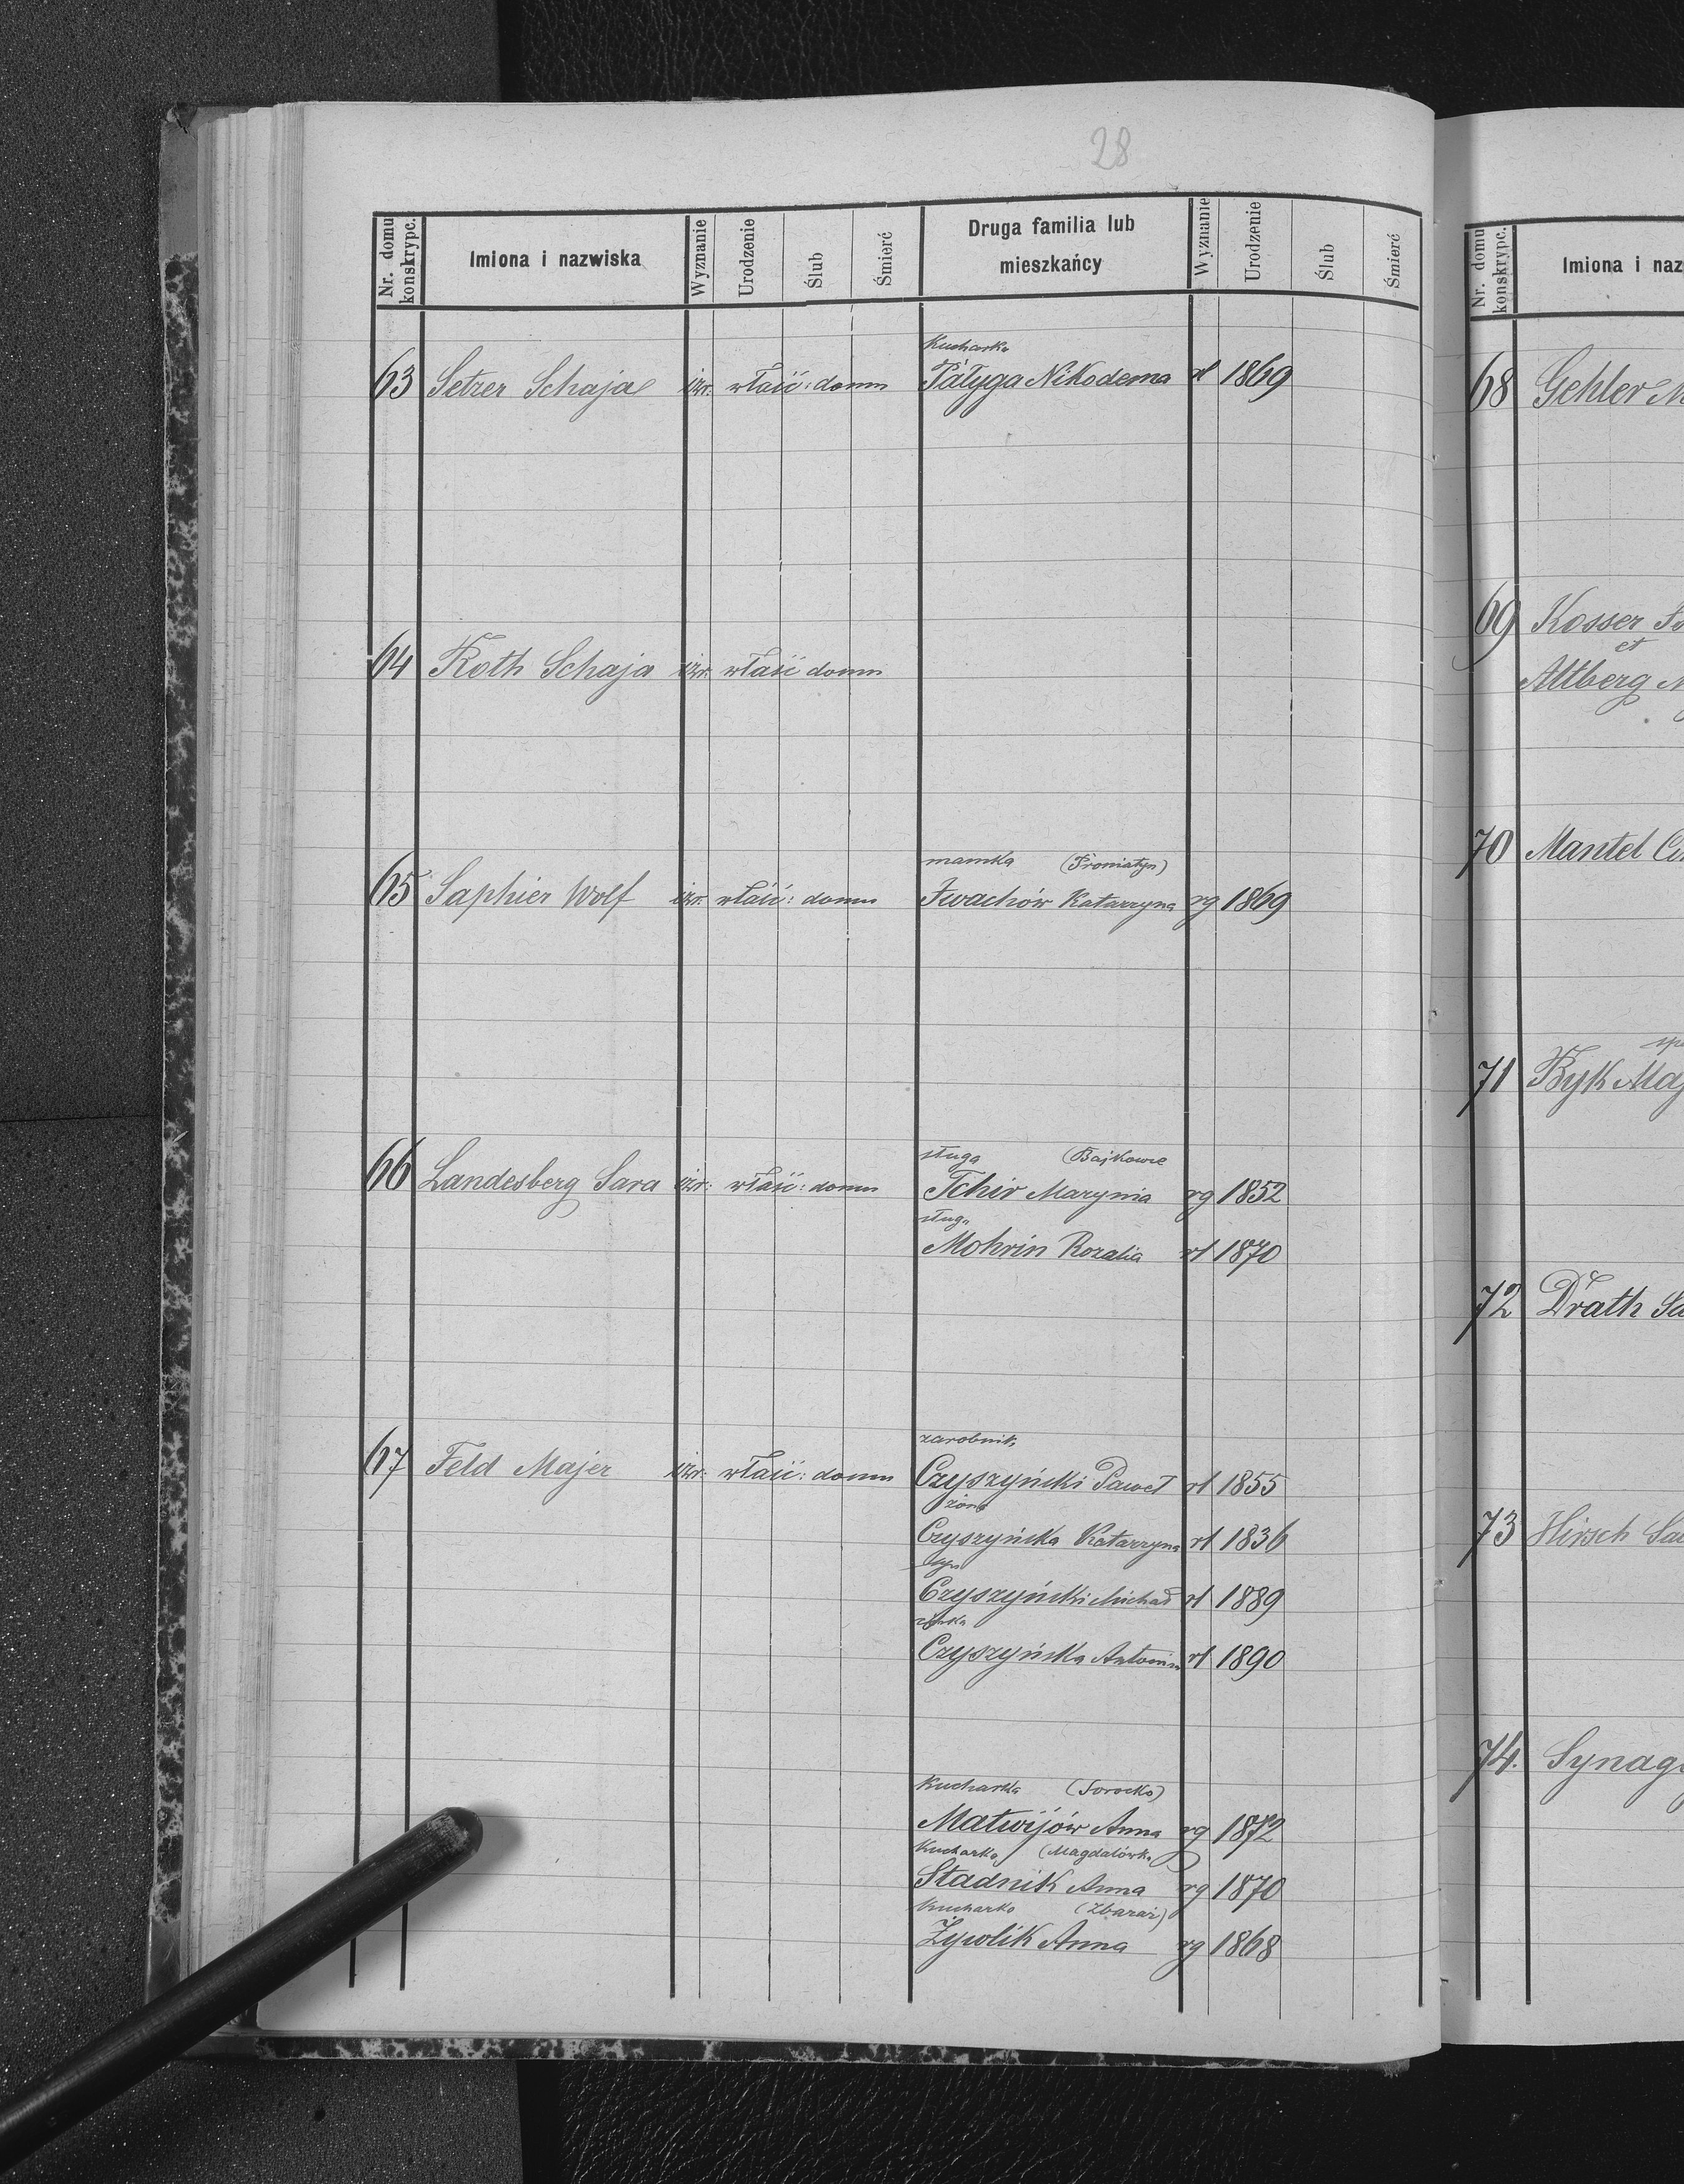 28
Nr. domu konskrypc. Imiona i nazwiska Wyznanie Urodzenie Ślub Śmierć Druga familia lub mieszkańcy Wyznanie Urodzenie Ślub Śmierć
Kucharka
63 Setzer Schaja izr: właść: domu Pałyga Nikodema rł 1869
64 Roth Schaja izr. właść domu
mamka (Proniatyn)
65 Saphier Wolf izr. właść: domu Iwachów Katarzyna rg 1869
sługa (Bajkowce
66 Landesberg Sara izr: właść: domu Tchir Marynia rg 1852
sługa
Mohrin Rozalia rł 1870
zarobnik
67 Feld Majer izr: właść: domu Czyszyński Paweł rł 1855
żona
Czyszyńska Katarzyna rł 1836
syn
Czyszyński Michał rł 1889
córka
Czyszyńska Antonin rł 1890
Kucharka (Sorocko)
Matwijów Anna rg 1872
Kucharka (Magdalówka
Stadnik Anna rg 1870
Kucharka (Zbaraż)
Żywlik Anna rg 1868
Nr. domu konskrypc. Imiona i naz
68 Gehler M
69 Kosser
et
Altberg M
70 Mantel
71 Byk Maj
72 Drath Sa
73 Hirsch Sal
74. Synag